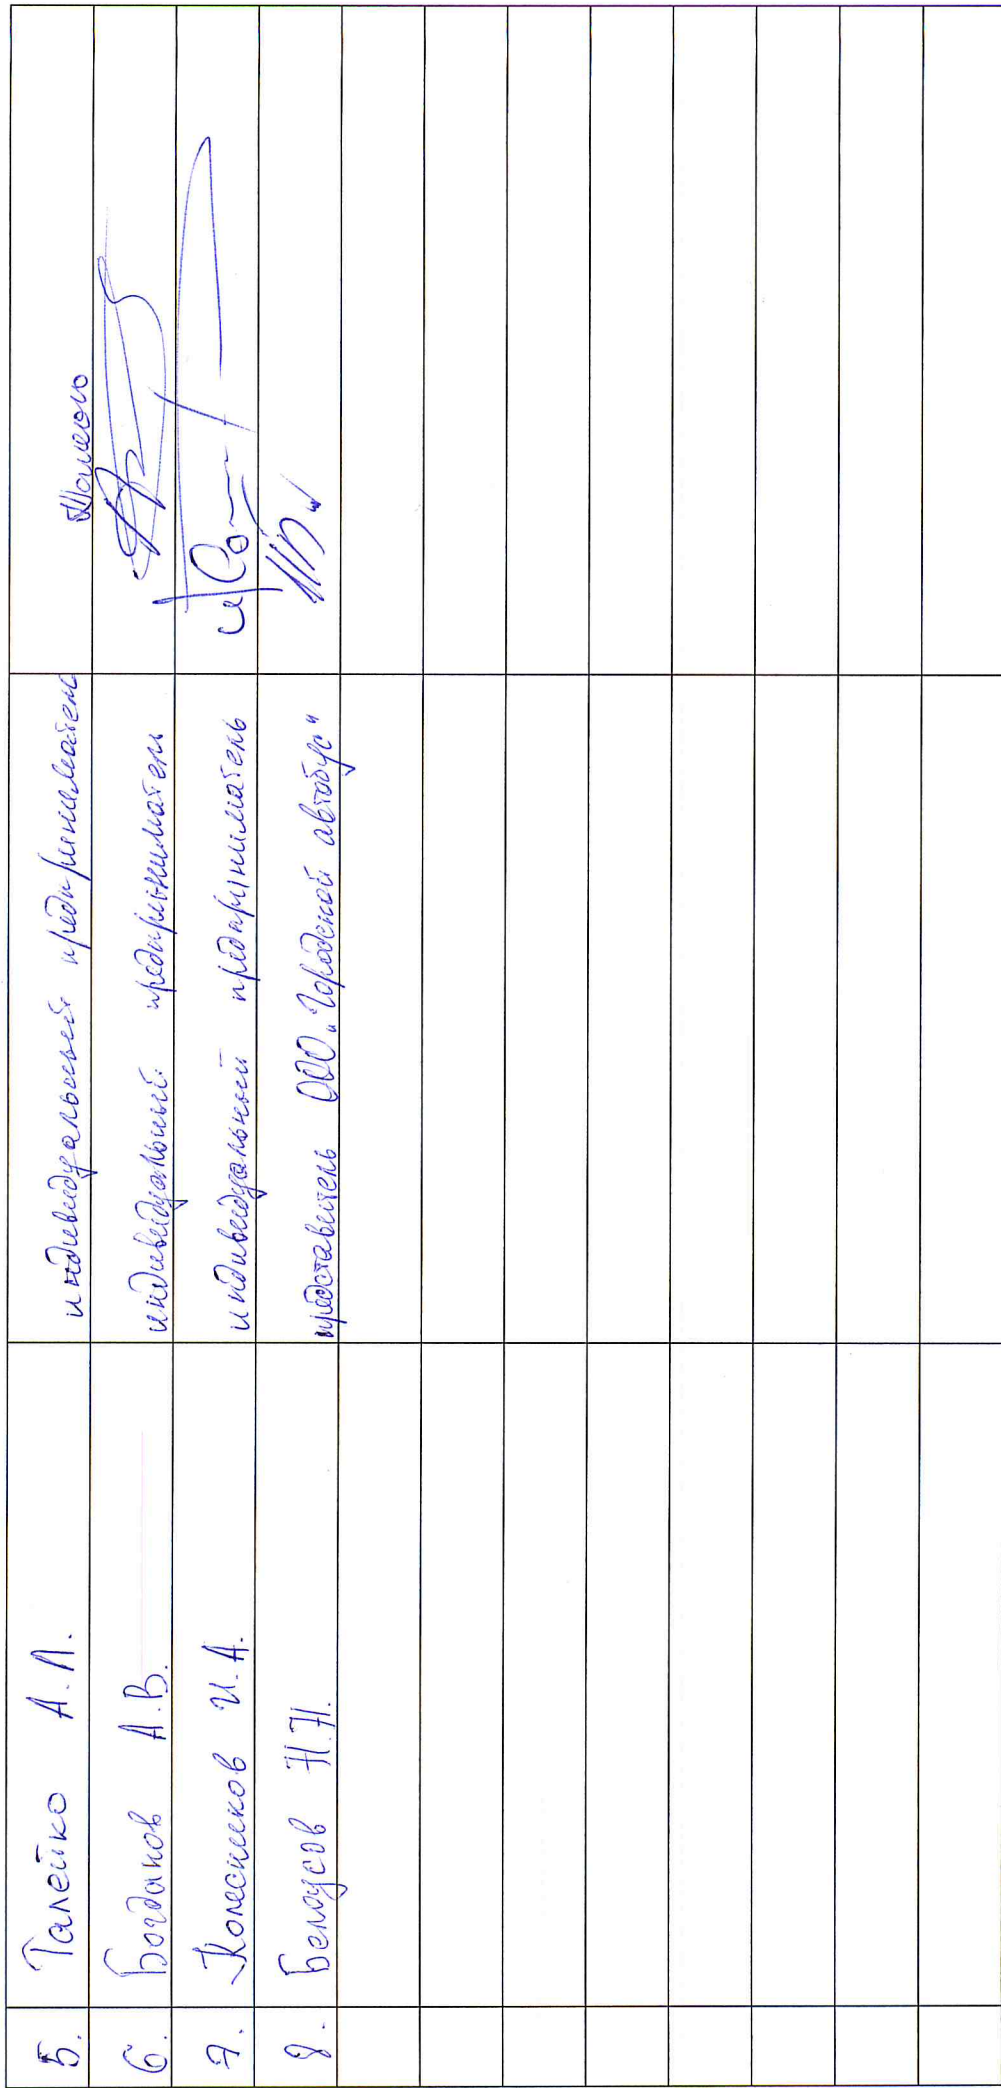 5. Талейко А.Л. индивидуальный предприниматель
6. Богданов А.В. индивидуальный предприниматель
7. Колесников И.А. индивидуальный предприниматель
8. Белоусов Н.Н. представитель ООО „Городской автобус"